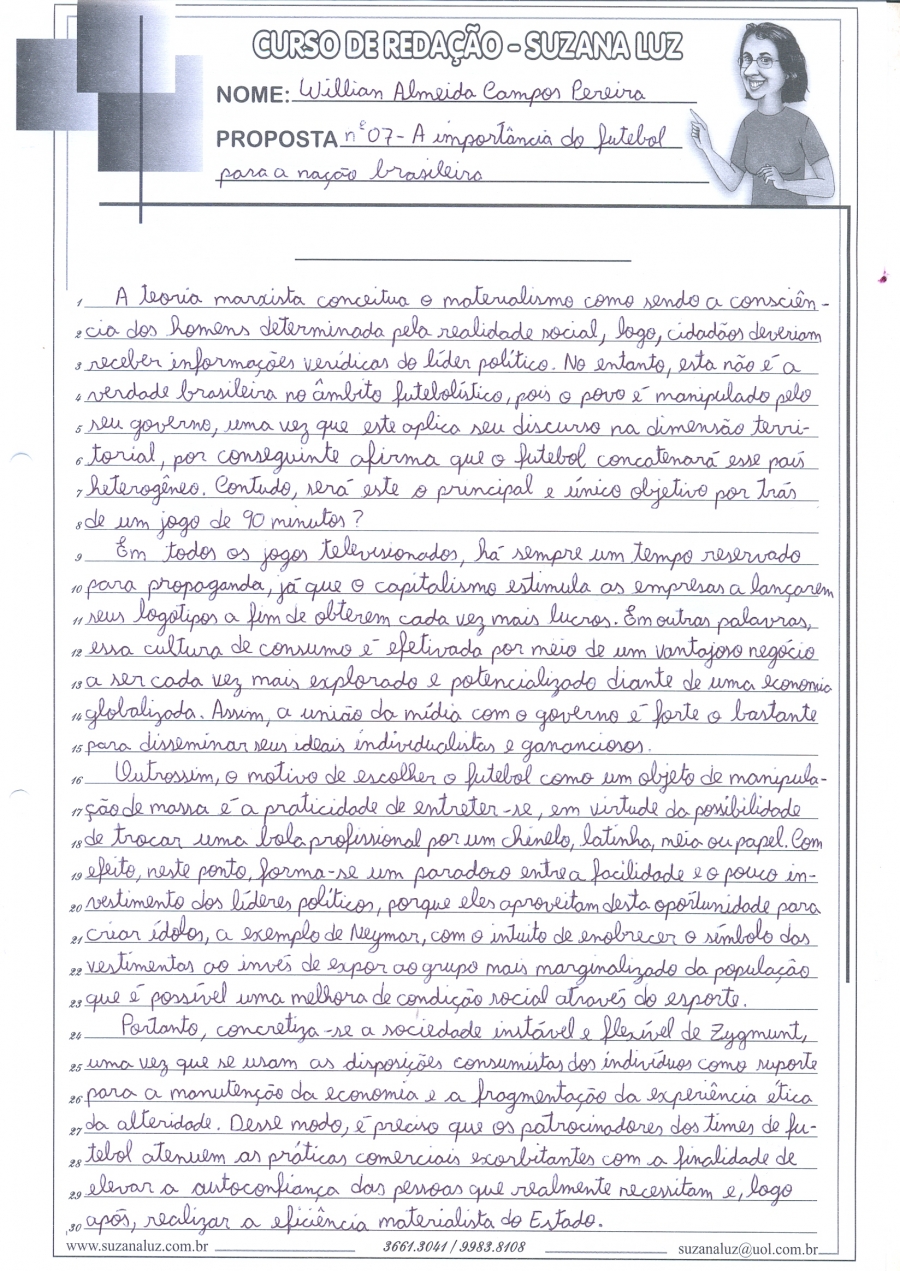 CURSO DE REDAÇÃO - SUZANA LUZ
NOME: Willian Almeida Campos Pereira
PROPOSTA nº 07 - A importância do futebol
para a nação brasileira
1 A teoria marxista conceitua o materialismo como sendo a consciên-
2 cia dos homens determinada pela realidade social, logo, cidadãos deveriam
3 receber informações verídicas do líder político. No entanto, esta não é a
4 verdade brasileira no âmbito futebolístico, pois o povo é manipulado pelo
5 seu governo, uma vez que este aplica seu discurso na dimensão terri-
6 torial, por conseguinte afirma que o futebol concatenará esse país
7 heterogêneo. Contudo, será este o principal e único objetivo por trás
8 de um jogo de 90 minutos?
9 Em todos os jogos televisionados, há sempre um tempo reservado
10 para propaganda, já que o capitalismo estimula as empresas a lançarem
11 seus logotipos a fim de obterem cada vez mais lucros. Em outras palavras,
12 essa cultura de consumo é efetivada por meio de um vantajoso negócio
13 a ser cada vez mais explorado e potencializado diante de uma economia
14 globalizada. Assim, a união da mídia com o governo é forte o bastante
15 para disseminar seus ideais individualistas e gananciosos.
16 Outrossim, o motivo de escolher o futebol como um objeto de manipula-
17 ção de massa é a praticidade de entreter-se, em virtude da possibilidade
18 de trocar uma bola profissional por um chinelo, latinha, meia ou papel. Com
19 efeito, neste ponto, forma-se um paradoxo entre a facilidade e o pouco in-
20 vestimento dos líderes políticos, porque eles aproveitam desta oportunidade para
21 criar ídolos, a exemplo de Neymar, com o intuito de enobrecer o símbolo das
22 vestimentas ao invés de expor ao grupo mais marginalizado da população
23 que é possível uma melhora de condição social através do esporte.
24 Portanto, concretiza-se a sociedade instável e flexível de Zygmunt,
25 uma vez que se usam as disposições consumistas dos indivíduos como suporte
26 para a manutenção da economia e a fragmentação da experiência ética
27 da alteridade. Desse modo, é preciso que os patrocinadores dos times de fu-
28 tebol atenuem as práticas comerciais exorbitantes com a finalidade de
29 elevar a autoconfiança das pessoas que realmente necessitam e, logo
30 após, realizar a eficiência materialista do Estado.
www.suzanaluz.com.br 3661.3041 / 9983.8108 suzanaluz@uol.com.br